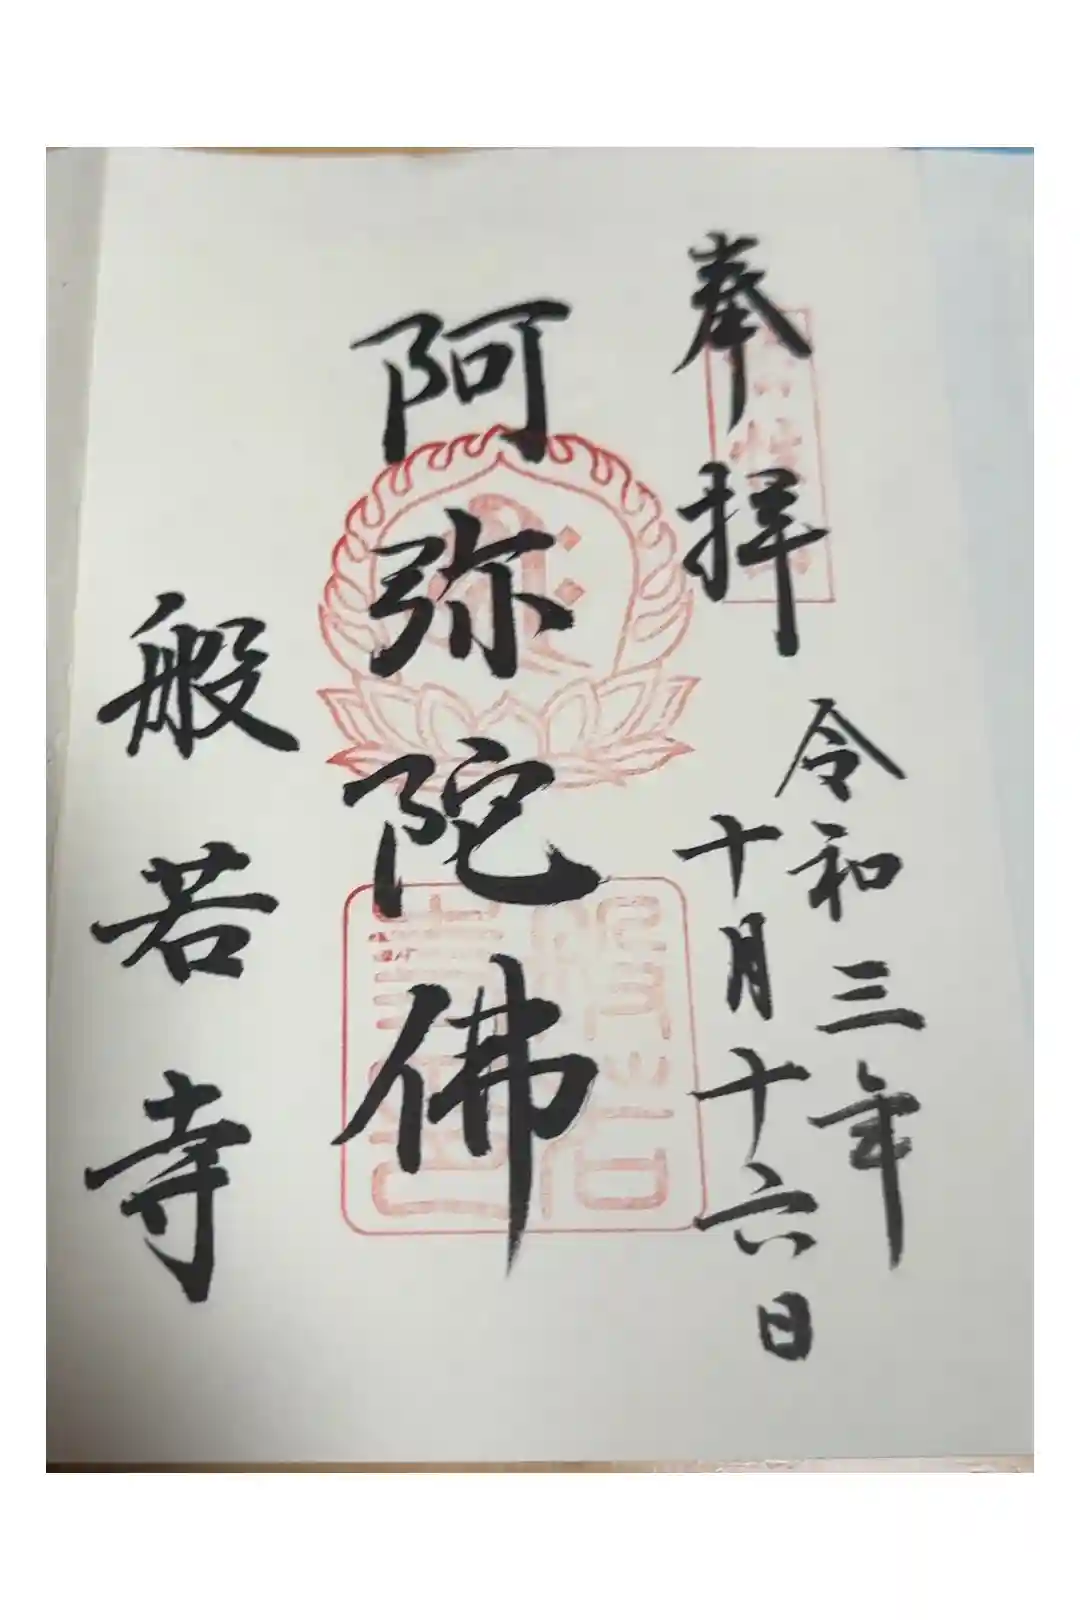 奉拝
令和三年
十月十六日
阿弥陀佛
般若寺